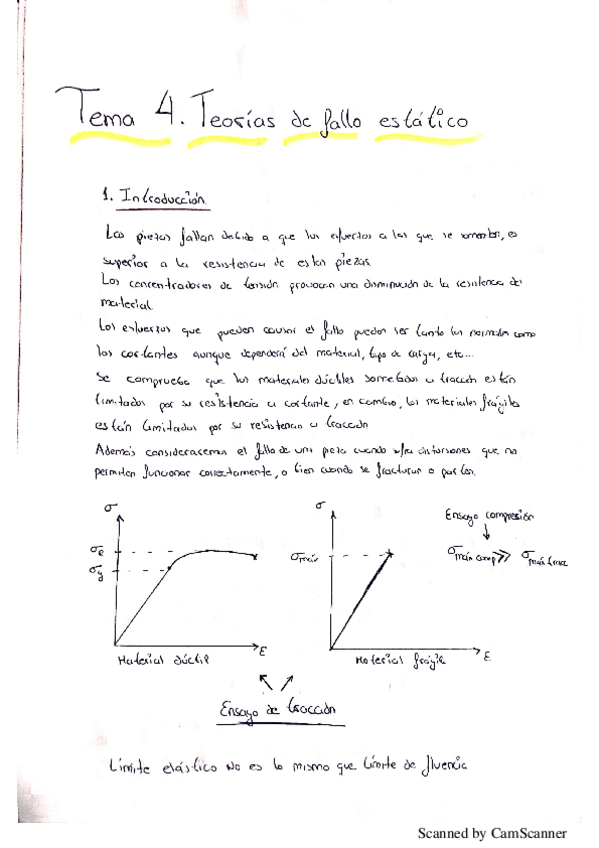 Tema 4. Teorías de fallo estático
1. Introducción
Las piezas fallan debido a que los esfuerzos a los que se someten, es
superior a la resistencia de estas piezas.
Los concentradores de tensión provocan una disminución de la resistencia del
material.
Los esfuerzos que pueden causar el fallo pueden ser tanto los normales como
los cortantes aunque dependerá del material, tipo de carga, etc...
Se comprueba que los materiales dúctiles sometidos a tracción están
limitados por su resistencia a cortante, en cambio, los materiales frágiles
están limitados por su resistencia a tracción
Además consideraremos el fallo de una pieza cuando sufra distorsiones que no
permiten funcionar correctamente, o bien cuando se fracturan o parten.
σ
σ
Ensayo compresión
σR
σy
σmáx
σmáx comp >> σmáx tracc
ε
ε
Material dúctil
Material frágil
Ensayo de tracción
Límite elástico no es lo mismo que límite de fluencia
Scanned by CamScanner